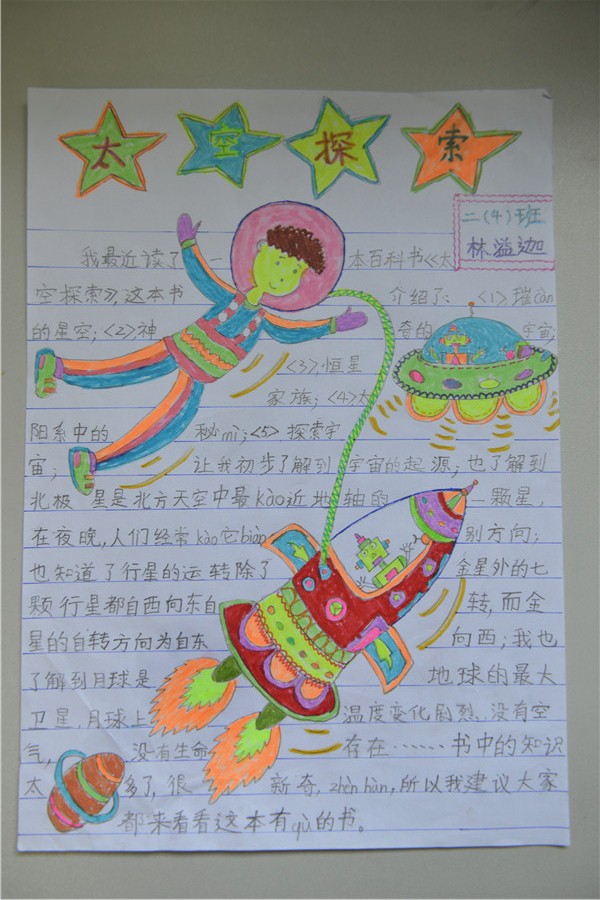 太空探索
二(4)班
林溢迦
我最近读了一本百科书《太
空探索》,这本书介绍了:<1>璀càn
的星空;<2>神奇的宇宙;
<3>恒星
家族;<4>太
阳系中的秘mì;<5>探索宇
宙;让我初步了解到宇宙的起源;也了解到
北极星是北方天空中最kào近地轴的一颗星,
在夜晚,人们经常kào它biàn别方向;
也知道了行星的运转除了金星外的七
颗行星都自西向东自转,而金
星的自转方向为自东向西;我也
了解到月球是地球的最大
卫星,月球上温度变化剧烈、没有空
气,没有生命存在……书中的知识
太多了,很新奇,zhèn hàn,所以我建议大家
都来看看这本有qù的书。